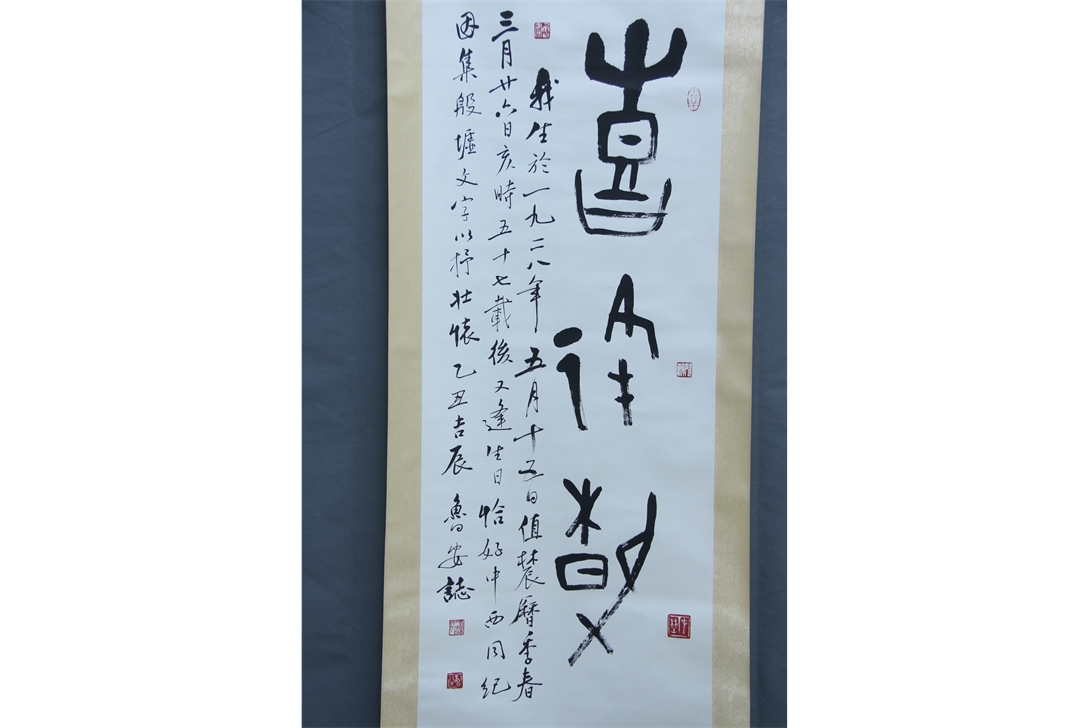 我生於一九二八年五月十五日值農曆季春
三月廿六日亥時五十七載後又逢生日恰好中西同紀
因集殷墟文字以抒壯懷乙丑吉辰魯安誌